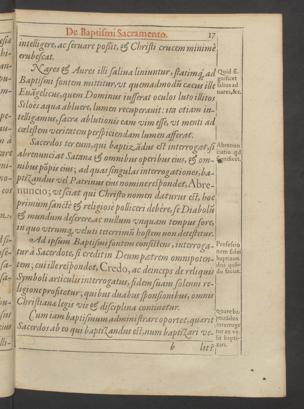 De Baptismi Sacramento. 17
intelligere, ac servare possit, & Christi crucem minimè
erubescat.
Nares & Aures illi saliva liniuntur, statimq́; ad
Baptismi fontem mittitur, vt quemadmodũ cæcus ille
Euãgelicus, quem Dominus iusserat oculos luto illitos
Siloës aqua abluere, lumen recuperauit: ita etiam in-
telligamus, sacræ ablutionis eam vim esse, vt menti ad
cœlestem veritatem perspiciendam lumen afferat.
Sacerdos ter eum, qui baptizãdus est interrogat, si
abrenunciat Satanæ & omnibus operibus eius, & om-
nibus põpis eius; ad quas singulas interrogationes, ba-
ptizandus vel Patrinus eius nomine respondet, Abre-
nuncio; vt sciat qui Christo nomen daturus est, hoc
primum sanctè & religiosè polliceri debere, se Diabolũ
& mundum deserere, ac nullum vnquam tempus fore,
in quo vtrumq́; veluti teterrimũ hostem non detestetur.
Ad ipsum Baptismi fontem consistens, interroga-
tur à Sacerdote, si credit in Deum patrem omnipoten-
tem; cui ille respondet, Credo, ac deinceps de reliquis
Symboli articulis interrogatus, fidem suam solenni re-
ligione profitetur; quibus duabus sponsionibus, omnis
Christianæ legis vis & disciplina continetur.
Cum iam baptismum administrare oportet, quærit
Sacerdos ab eo qui baptizandus est, num baptizari ve-
b